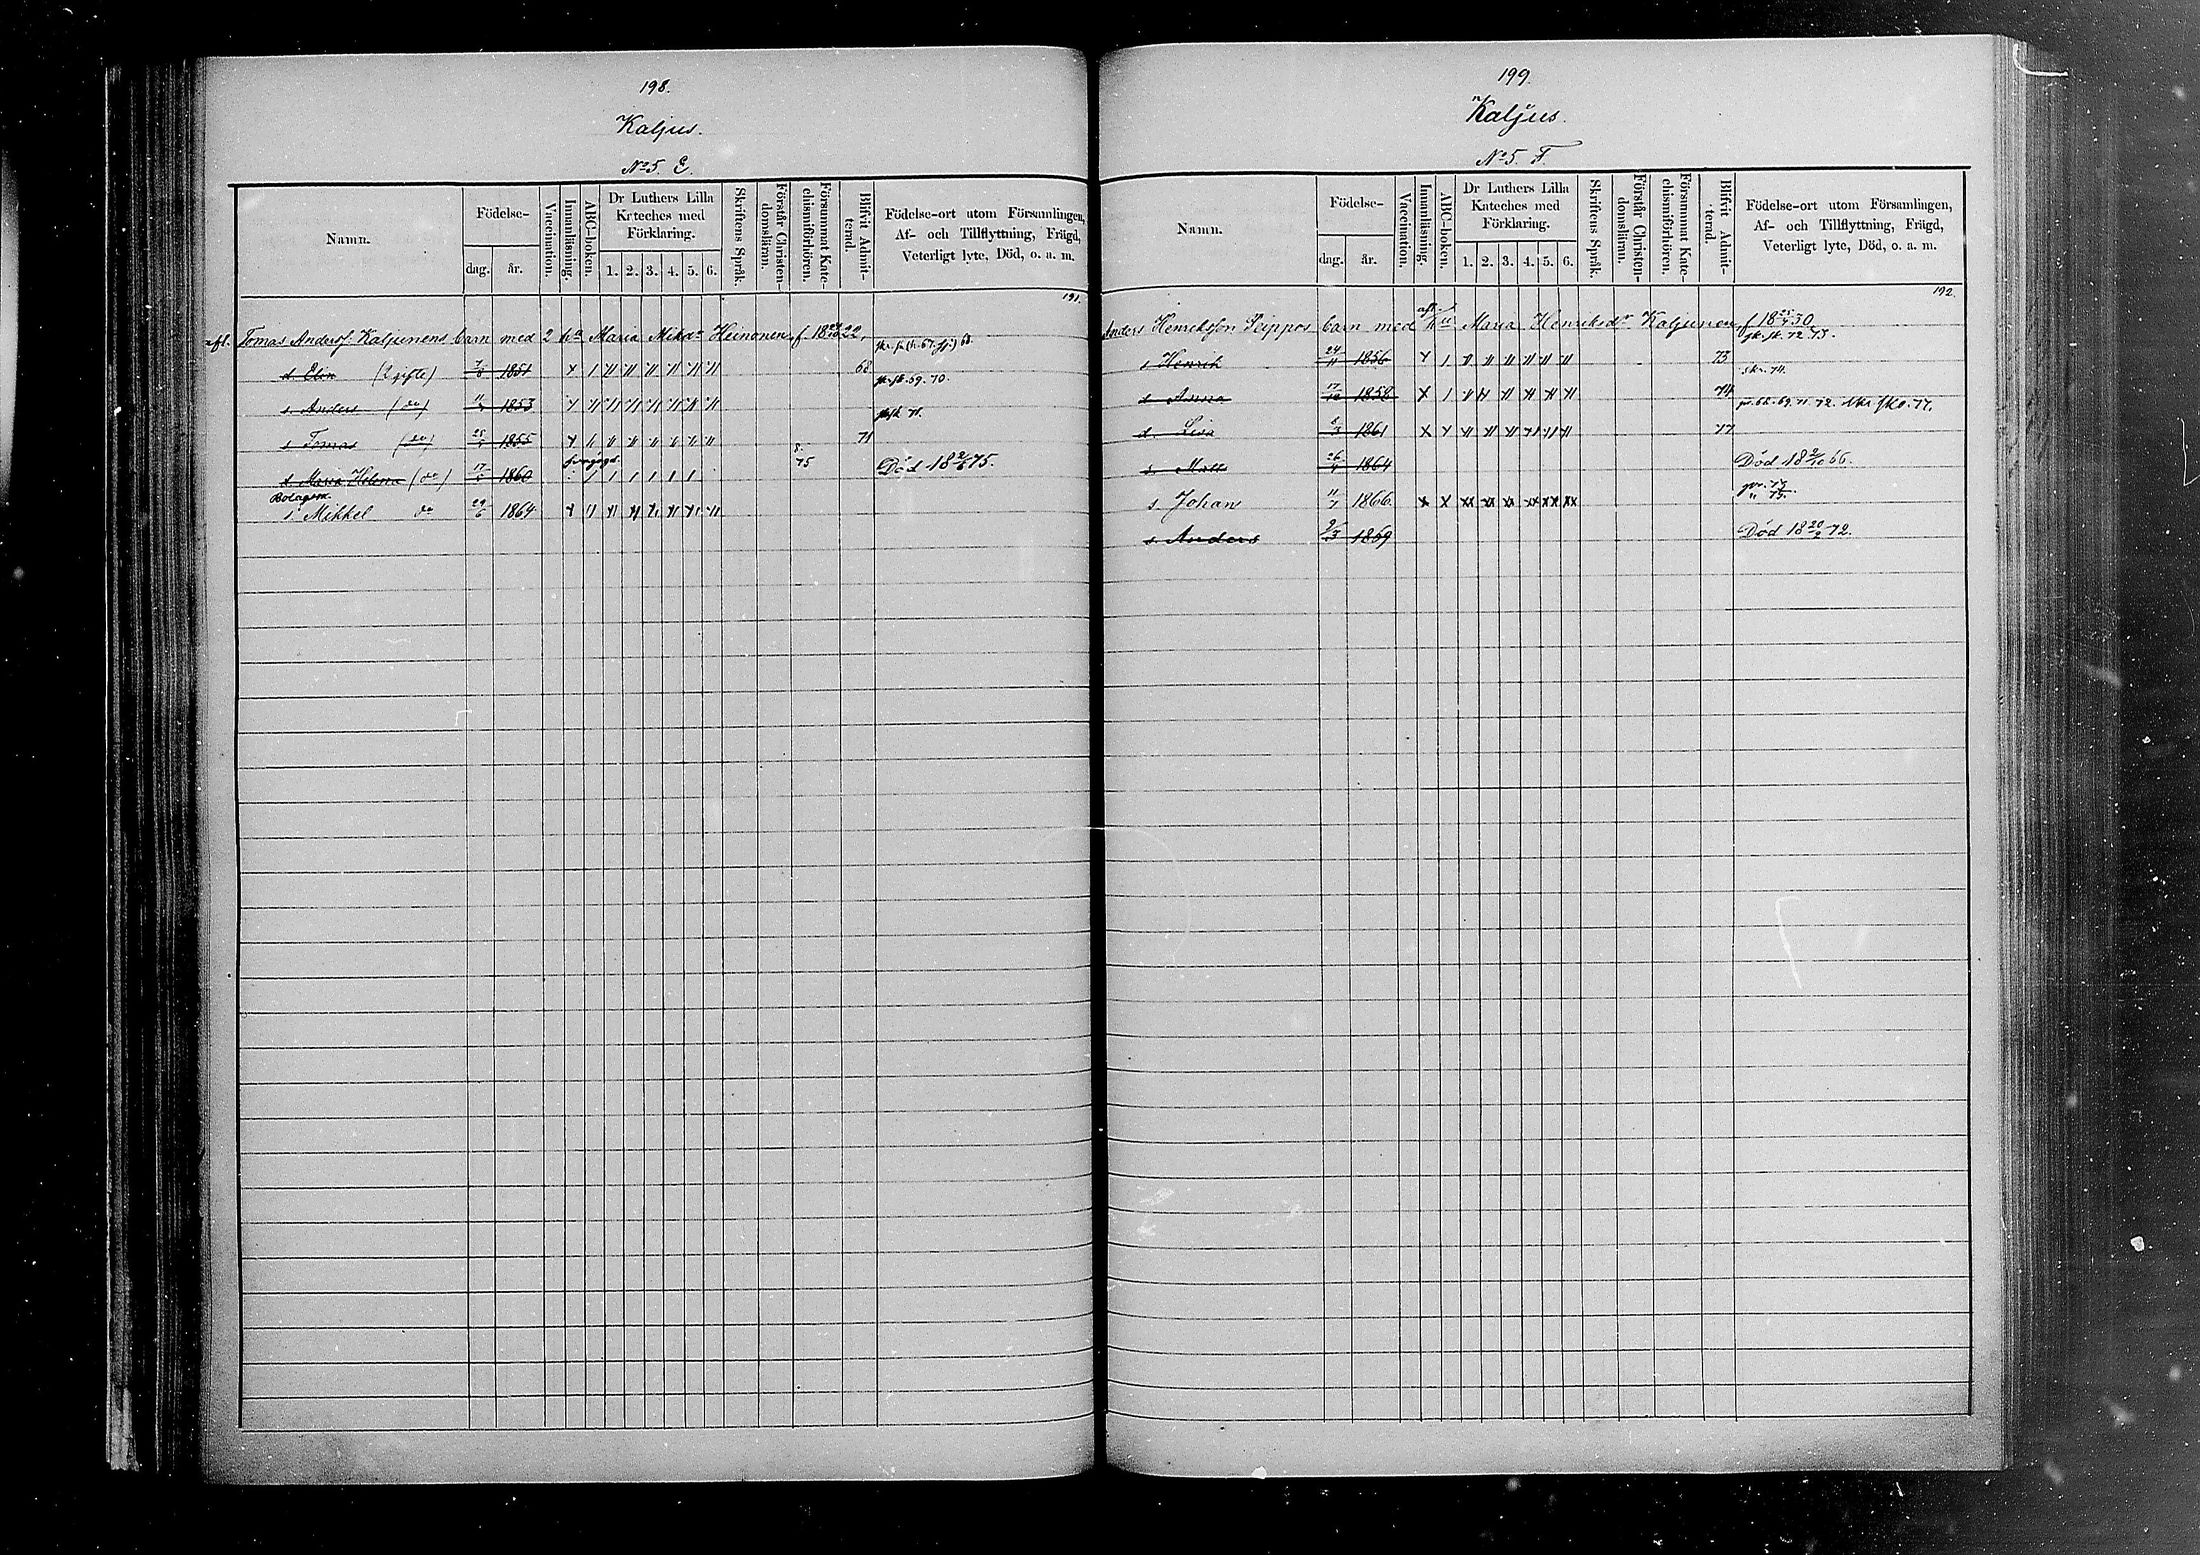 198.
Kaljus.
No 5. E.
Namn.
Födelse-
dag.
år.
Vaccination.
Innanläsning.
ABC-boken.
Dr Luthers Lilla
Krteches med
Förklaring.
1. 2. 3. 4. 5. 6.
Skriftens Språk.
Förstår Christen-
domsläran.
Försummat Kate-
chismiförhören.
Blifvit Admit-
terad.
Födelse-ort utom Församlingen,
Af- och Tillflyttning, Frägd,
Veterligt lyte, Död, o. a. m.
191.
afl. Tomas Andersf. Kaljunens barn med 2 hu Maria Mikdr Heinonen, f. 18 22,
d. Elin (2 gifte) 7/8 1851 68
s. Anders (do) 1853 69. 70.
s. Tomas (do) 25 1855 71 71.
d. Maria Helena (do) 17 1860 75 Död 18 75.
Bolagsm.
s. Mikkel do 29/6 1864
199.
Kaljus.
No 5. F.
Namn.
Födelse-
dag.
år.
Vaccination.
Innanläsning.
ABC-boken.
Dr Luthers Lilla
Kateches med
Förklaring.
1. 2. 3. 4. 5. 6.
Skriftens Språk.
Förstår Christen-
domsläran.
Försummat Kate-
chismiförhören.
Blifvit Admit-
terad.
Födelse-ort utom Församlingen,
Af- och Tillflyttning, Frägd,
Veterligt lyte, Död, o. a. m.
192.
Anders Henriksson Seippos barn med hu Maria Henriksdr Kaljunen, f 18 30,
72. 73.
s Henrik 24/11 1856 73 skr. 74.
d Anna 17/10 1858 74 68. 69. 71. 72. 77.
d. Lisa 1861 77
s. Matts 26 1864 Död 18 2/10 66.
s. Johan 11/7 1866.
s. Anders 1869 Död 18 20 72.